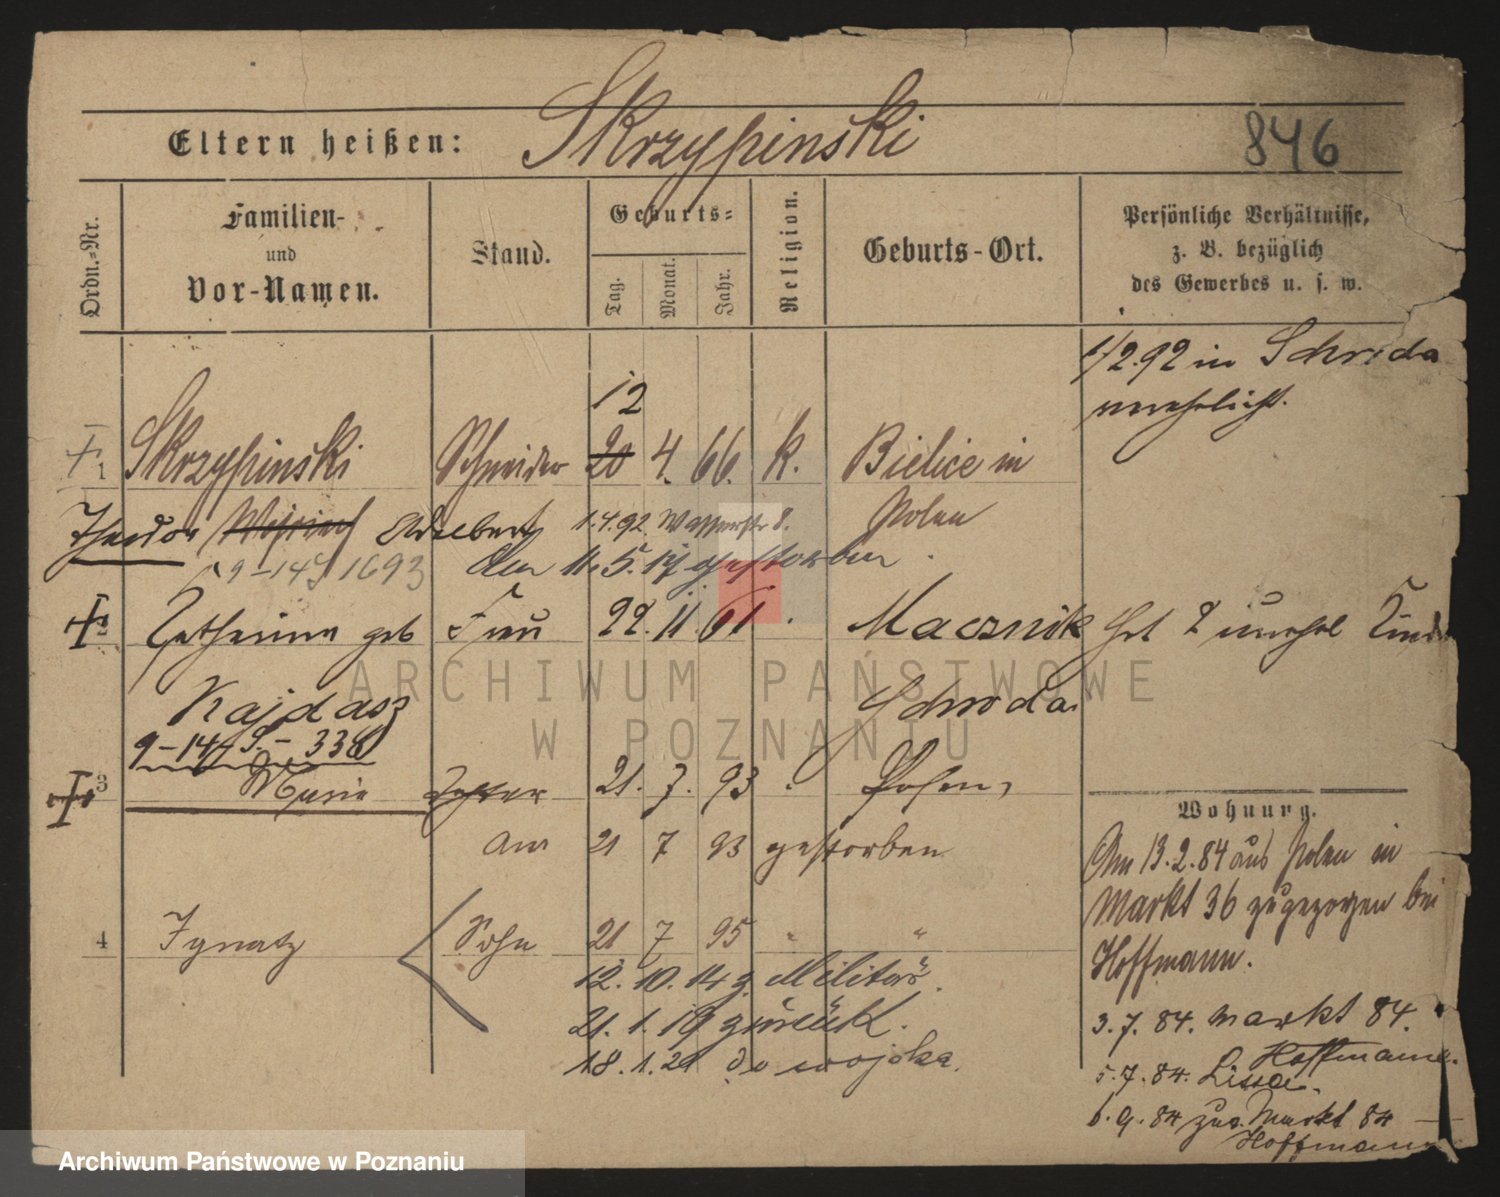 Eltern heißen: Skrzypinski 846
Ordn.-Nr.
Familien-
und
Vor-Namen.
Stand.
Geburts-
Tag. Monat. Jahr.
Religion.
Geburts-Ort.
Persönliche Verhältnisse,
z. B. bezüglich
des Gewerbes u. s. w.
1/2.92 in Schroda
verehelicht.
12
1 Skrzypinski Schneider 20 4. 66. k. Bielice in
Theodor Adalbert 1.4.92. Wasserstr 8. Polen
9-14 S 1693 den 11.5.17 gestorben.
2 Catharina geb Frau 22. 11. 61. Macznik hat 2 unehel Kinder
Kajdasz Schroda
9-14 S.-338
3 Marie Tochter 21. 7. 93 Posen,
am 21 7 93 gestorben
4 Ignatz Sohn 21 7 95 " "
12. 10. 14 z. Militär.
21. 1. 19 zurück.
18. 1. 21 do wojska.
Wohnung.
Am 13.2.84 aus Polen in
Markt 36 zugezogen bei
Hoffmann.
3.7.84. Markt 84.
Hoffmann.
5.7.84. Lissa.
6.9.84 zug. Markt 84
Hoffmann
ARCHIWUM PAŃSTWOWE
W POZNANIU
Archiwum Państwowe w Poznaniu